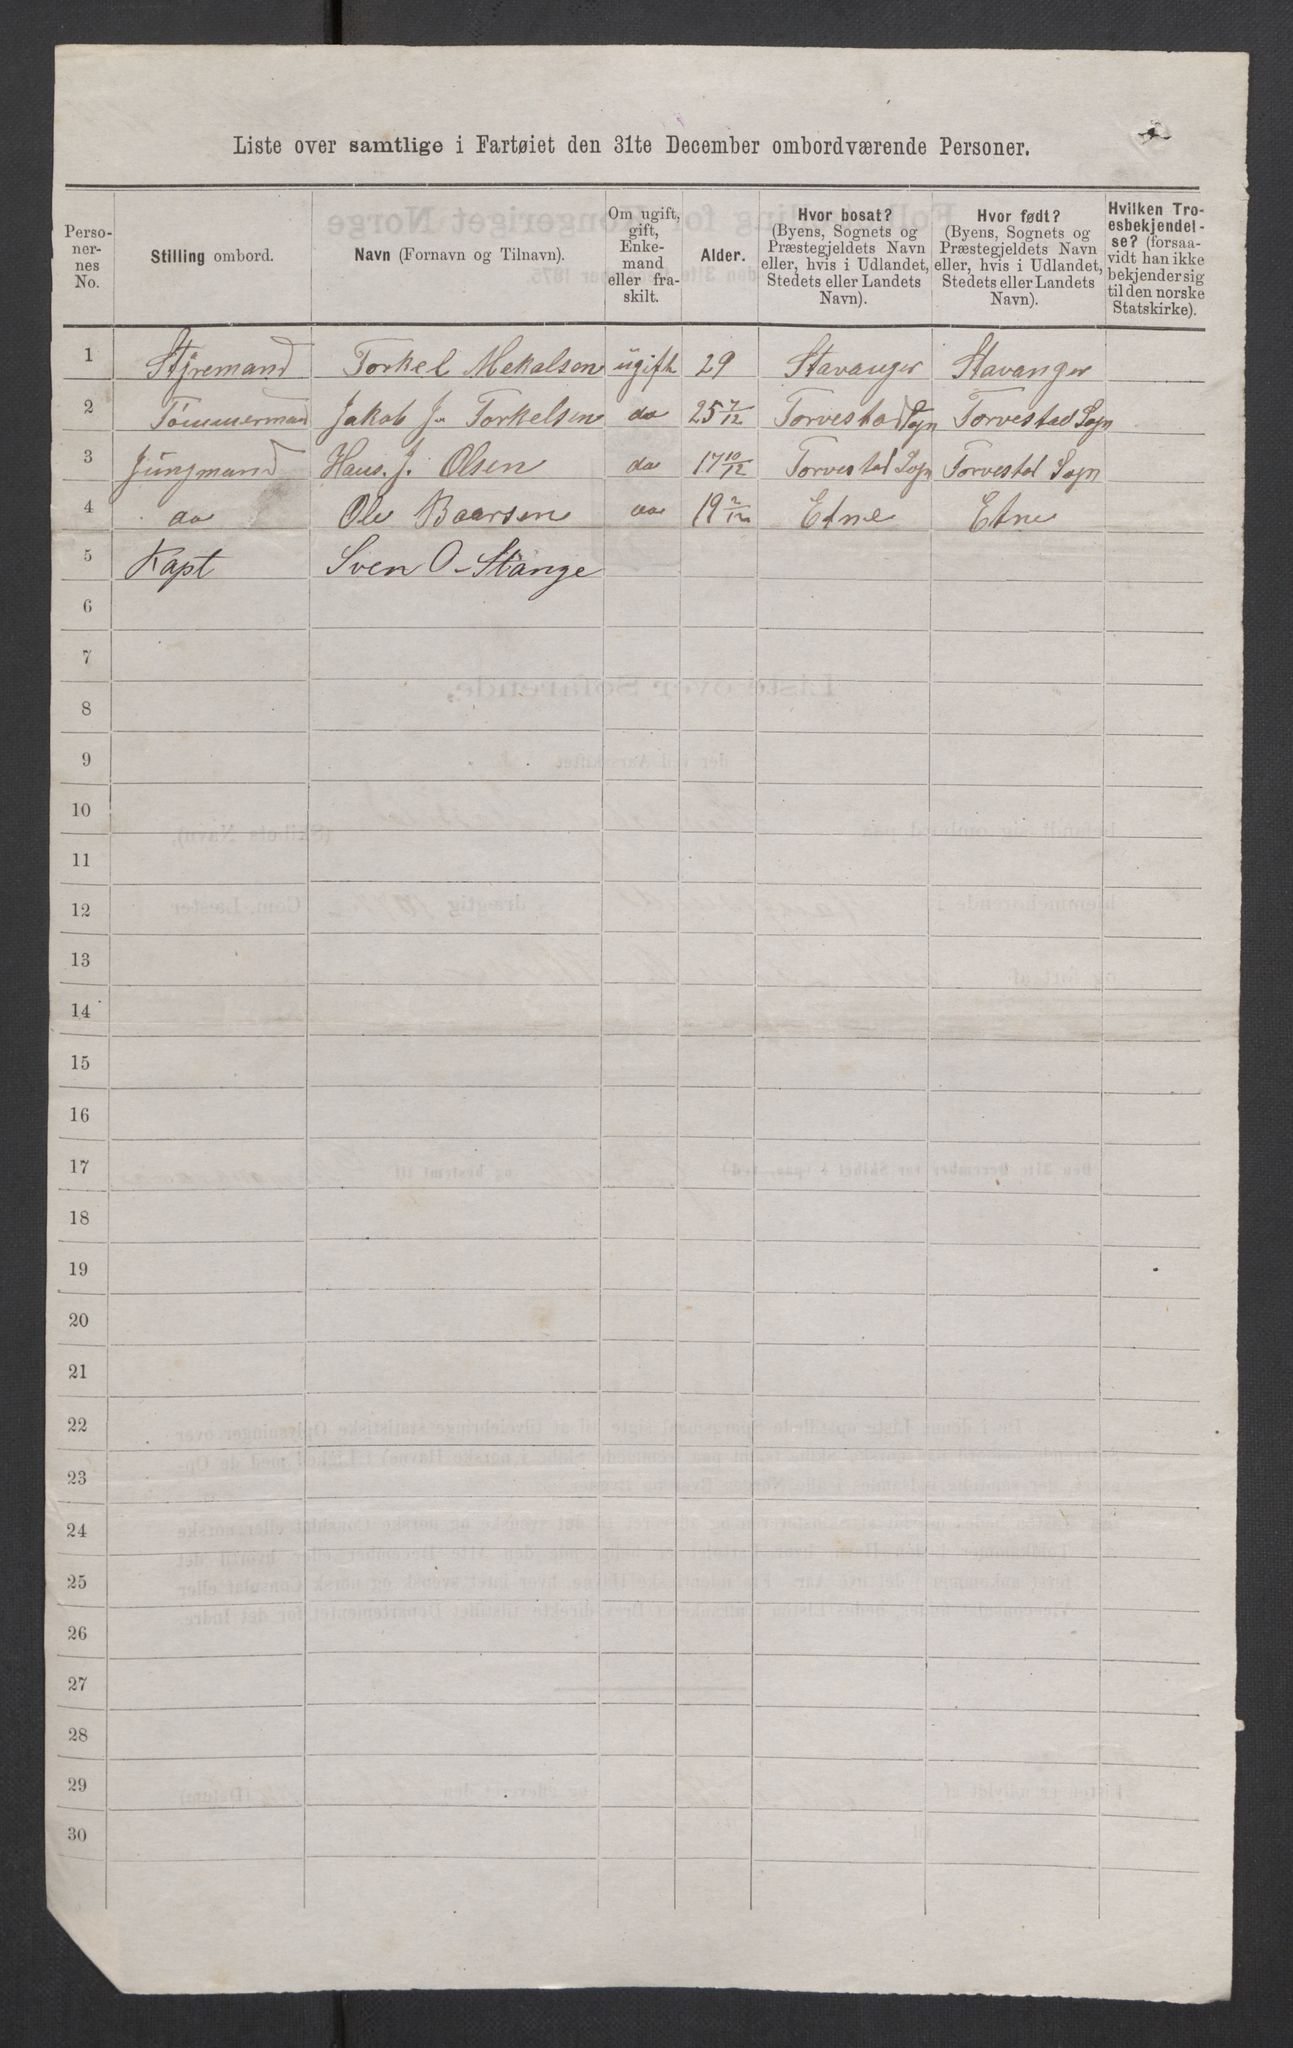 Liste over samtlige i Fartøiet den 31te December ombordværende Personer.
Perso-
ner-
nes
No.
Stilling ombord.
Navn (Fornavn og Tilnavn).
Om ugift,
gift,
Enke-
mand
eller fra-
skilt.
Alder.
Hvor bosat?
(Byens, Sognets og
Præstegjeldets Navn
eller, hvis i Udlandet,
Stedets eller Landets
Navn).
Hvor født?
(Byens, Sognets og
Præstegjeldets Navn
eller, hvis i Udlandet,
Stedets eller Landets
Navn).
Hvilken Tro-
esbekjendel-
se? (forsaa-
vidt han ikke
bekjender sig
til den norske
Statskirke).
1 Styremand Torkel Mekalsen ugift 29 Stavanger Stavanger
2 Tømmermand Jakob J. Torkelsen do 25 7/12 Torvestad Sogn Torvestad Sogn
3 Jungmand Hans. J. Olsen do 17 10/12 Torvestad Sogn Torvestad Sogn
4 do Ole Baarsen do 19 2/12 Etne Etne
5 Kapt Sven O Stange
6
7
8
9
10
11
12
13
14
15
16
17
18
19
20
21
22
23
24
25
26
27
28
29
30